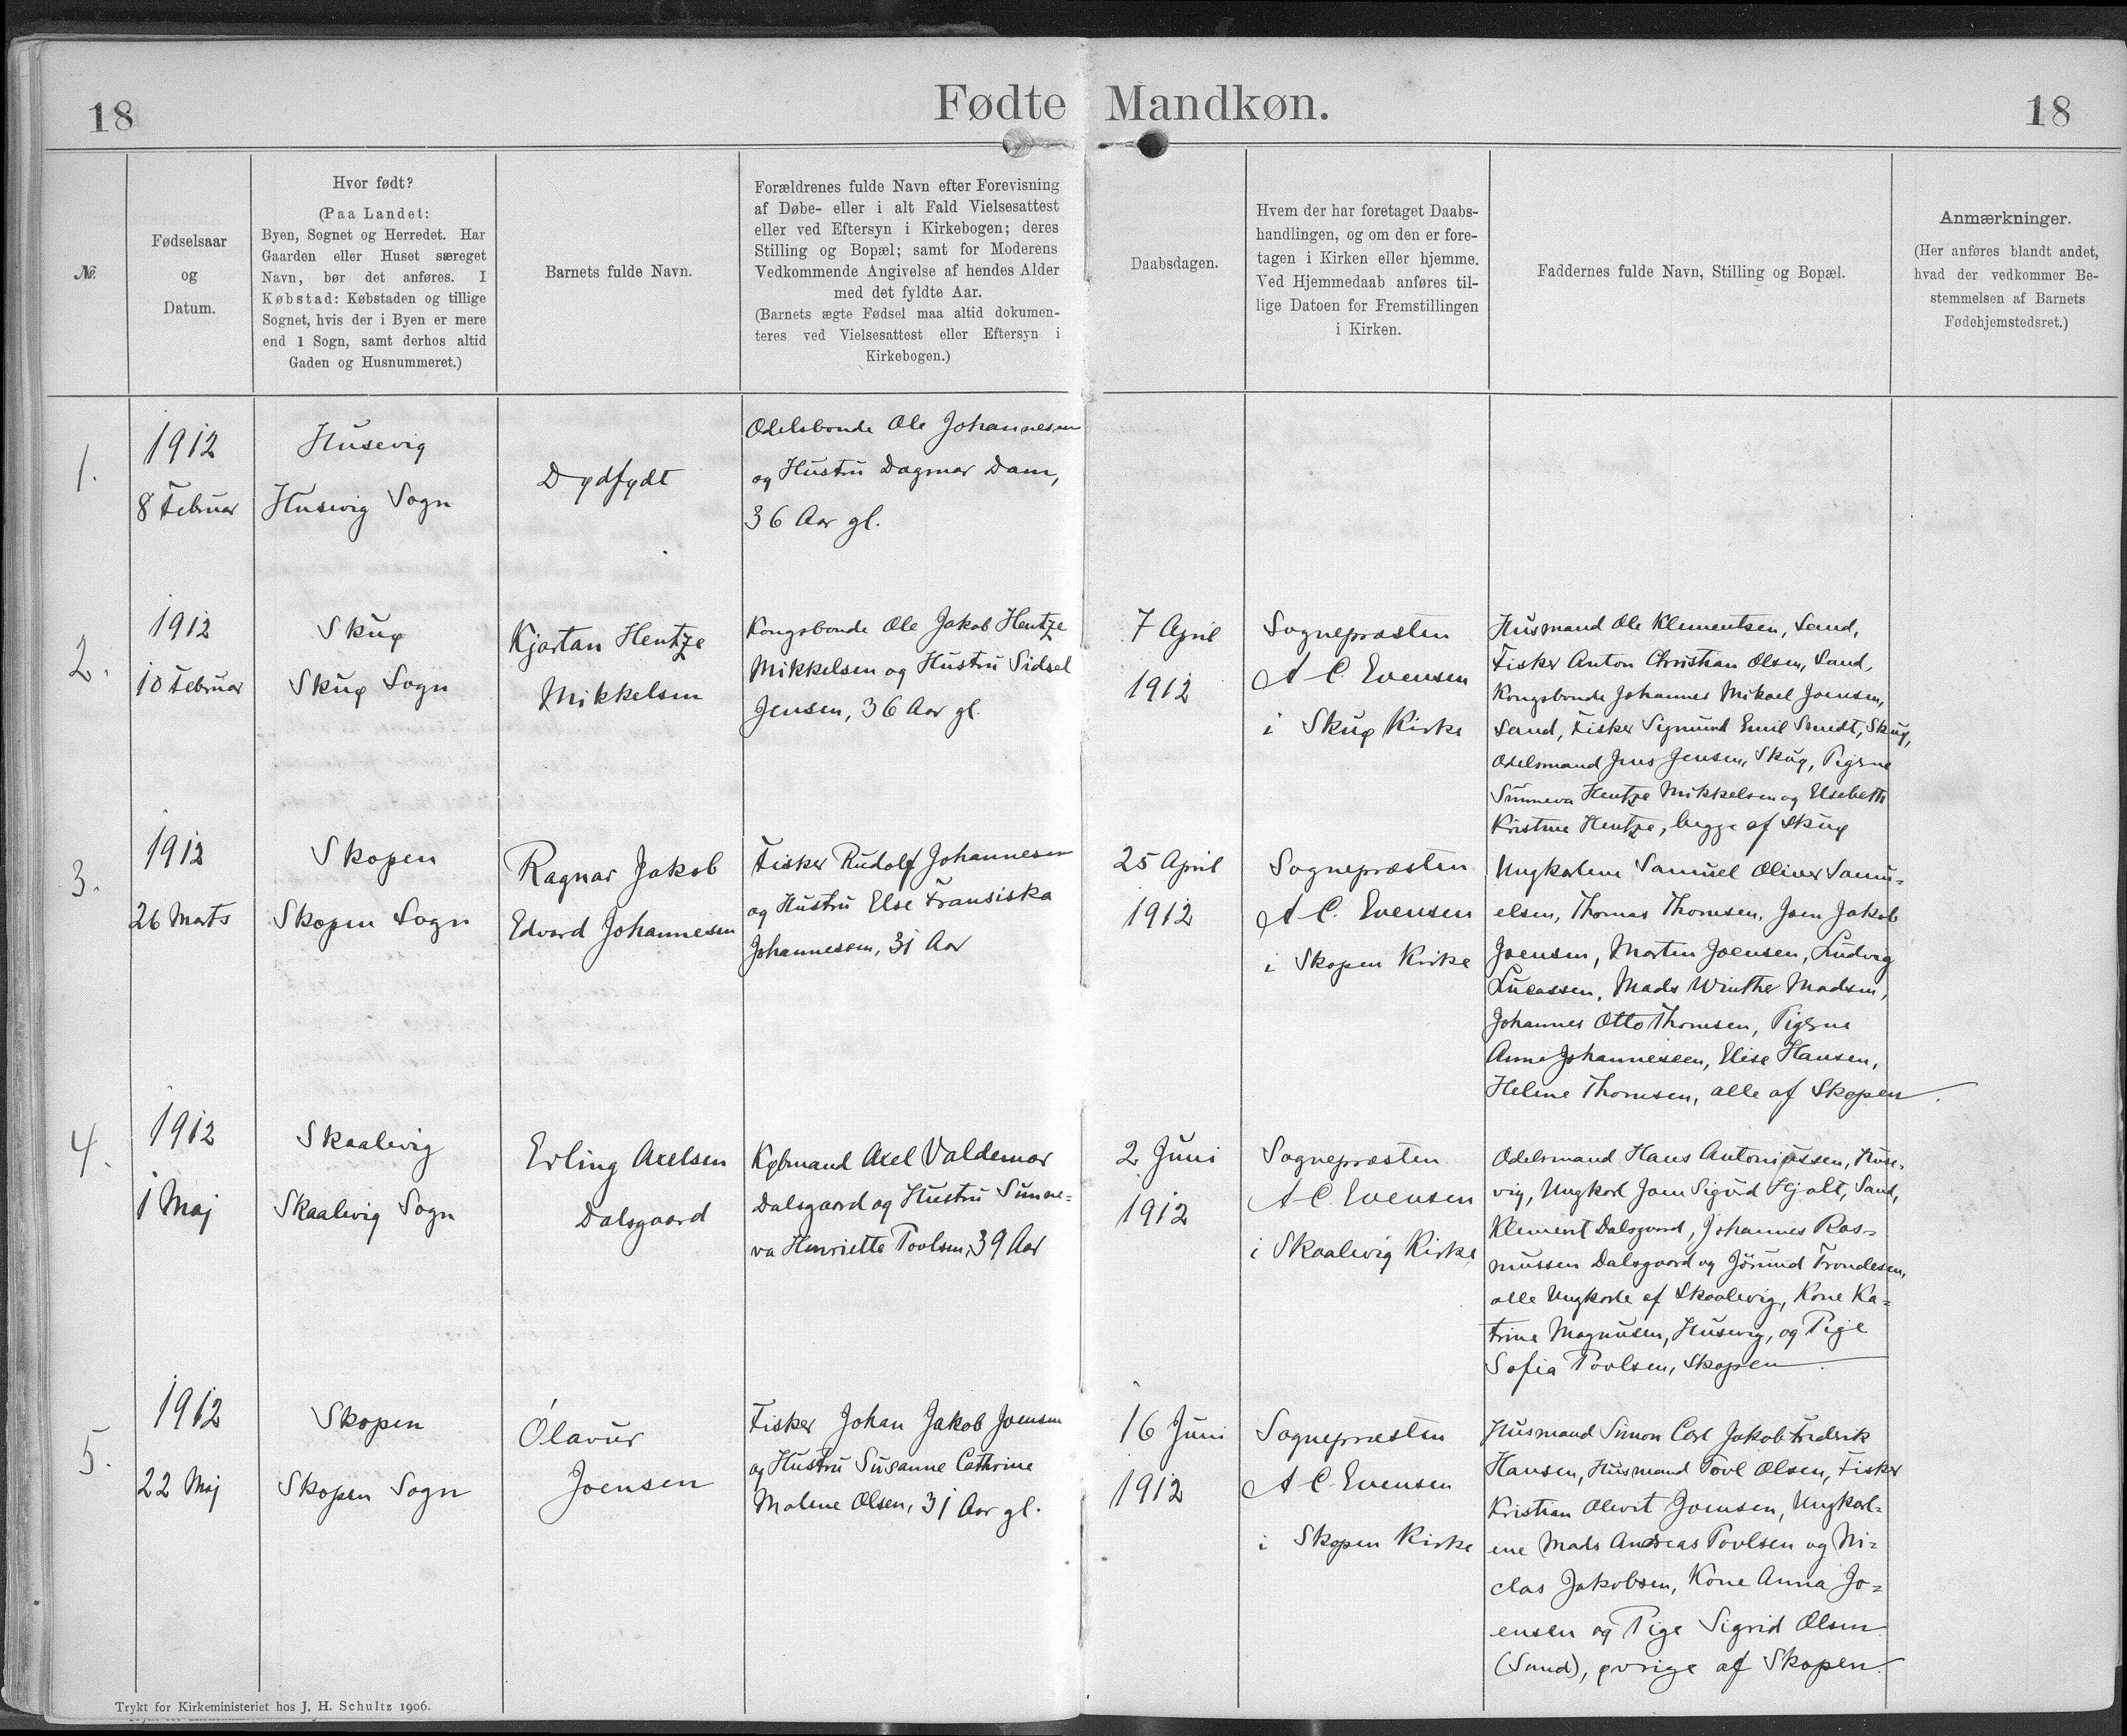 18
Fødte Mandkøn.
18
№
Fødselsaar
og
Datum.
Hvor født?
(Paa Landet:
Byen, Sognet og Herredet. Har
Gaarden eller Huset særeget
Navn, bør det anføres. I
Købstad: Købstaden og tillige
Sognet, hvis der i Byen er mere
end 1 Sogn, samt derhos altid
Gaden og Husnummeret.)
Barnets fulde Navn.
Forældrenes fulde Navn efter Forevisning
af Døbe- eller i alt Fald Vielsesattest
eller ved Eftersyn i Kirkebogen; deres
Stilling og Bopæl; samt for Moderens
Vedkommende Angivelse af hendes Alder
med det fyldte Aar.
(Barnets ægte Fødsel maa altid dokumen-
teres ved Vielsesattest eller Eftersyn i
Kirkebogen.)
Daabsdagen.
Hvem der har foretaget Daabs-
handlingen, og om den er fore-
tagen i Kirken eller hjemme.
Ved Hjemmedaab anføres til-
lige Datoen for Fremstillingen
i Kirken.
Faddernes fulde Navn, Stilling og Bopæl.
Anmærkninger.
(Her anføres blandt andet,
hvad der vedkommer Be-
stemmelsen af Barnets
Fødehjemstedsret.)
1.
1912
8 Februar
Husevig
Husevig Sogn
Dødfødt
Odelsbonde Ole Johannesen
og Hustru Dagmar Dam,
36 Aar gl.
2.
1912
10 Februar
Skuø
Skuø Sogn
Kjartan Hentze
Mikkelsen
Kongsbonde Ole Jakob Hentze
Mikkelsen og Hustru Sidsel
Jensen, 36 Aar gl.
7 April
1912
Sognepræsten
A C. Evensen
i Skuø Kirke
Husmand Ole Klementsen, Sand,
Fisker Anton Christian Olsen, Sand,
Kongsbonde Johannes Mikael Joensen,
Sand, Fisker Sigmund Emil Smidt, Skuø,
Odelsmand Jens Jensen, Skuø, Pigerne
Sunneva Hentze Mikkelsen og Elsebeth
Kristine Hentze, begge af Skuø
3.
1912
26 Marts
Skopen
Skopen Sogn
Ragnar Jakob
Edvard Johannesen
Fisker Rudolf Johannesen
og Hustru Else Fransiska
Johannesen, 31 Aar
25 April
1912
Sognepræsten
A C. Evensen
i Skopen Kirke
Ungkarlene Samuel Oliver Samu-
elsen, Thomas Thomsen, Joen Jakob
Joensen, Martin Joensen, Ludvig
Lucassen, Mads Winther Madsen,
Johannes Otto Thomsen, Pigerne
Anne Johannesen, Elise Hansen,
Helene Thomsen, alle af Skopen.
4.
1912
1 Maj
Skaalevig
Skaalevig Sogn
Erling Axelsen
Dalsgaard
Købmand Axel Valdemar
Dalsgaard og Hustru Sunne-
va Henriette Poulsen, 39 Aar
2 Juni
1912
Sognepræsten
A C. Evensen
i Skaalevig Kirke
Odelsmand Hans Antoniussen, Huse-
vig, Ungkarl Joen Sigurd Hjalt, Sand,
Klement Dalsgaard, Johannes Ras-
mussen Dalsgaard og Jörund Trondesen,
alle Ungkarle af Skaalevig, Kone Ka-
trine Magnusen, Husevig, og Pige
Sofia Poulsen, Skopen.
5.
1912
22 Maj
Skopen
Skopen Sogn
Ólavur
Joensen
Fisker Johan Jakob Joensen
og Hustru Susanne Cathrine
Malene Olsen, 31 Aar gl.
16 Juni
1912
Sognepræsten
A C. Evensen
i Skopen Kirke
Husmand Simon Carl Jakob Frederik
Hansen, Husmand Povl Olsen, Fisker
Kristian Joensen, Ungkarl-
ene Mads Andreas Poulsen og Ni-
clas Jakobsen, Kone Anna Jo-
ensen og Pige Sigrid Olsen
(Sand), øvrige af Skopen.
Trykt for Kirkeministeriet hos J. H. Schultz 1906.